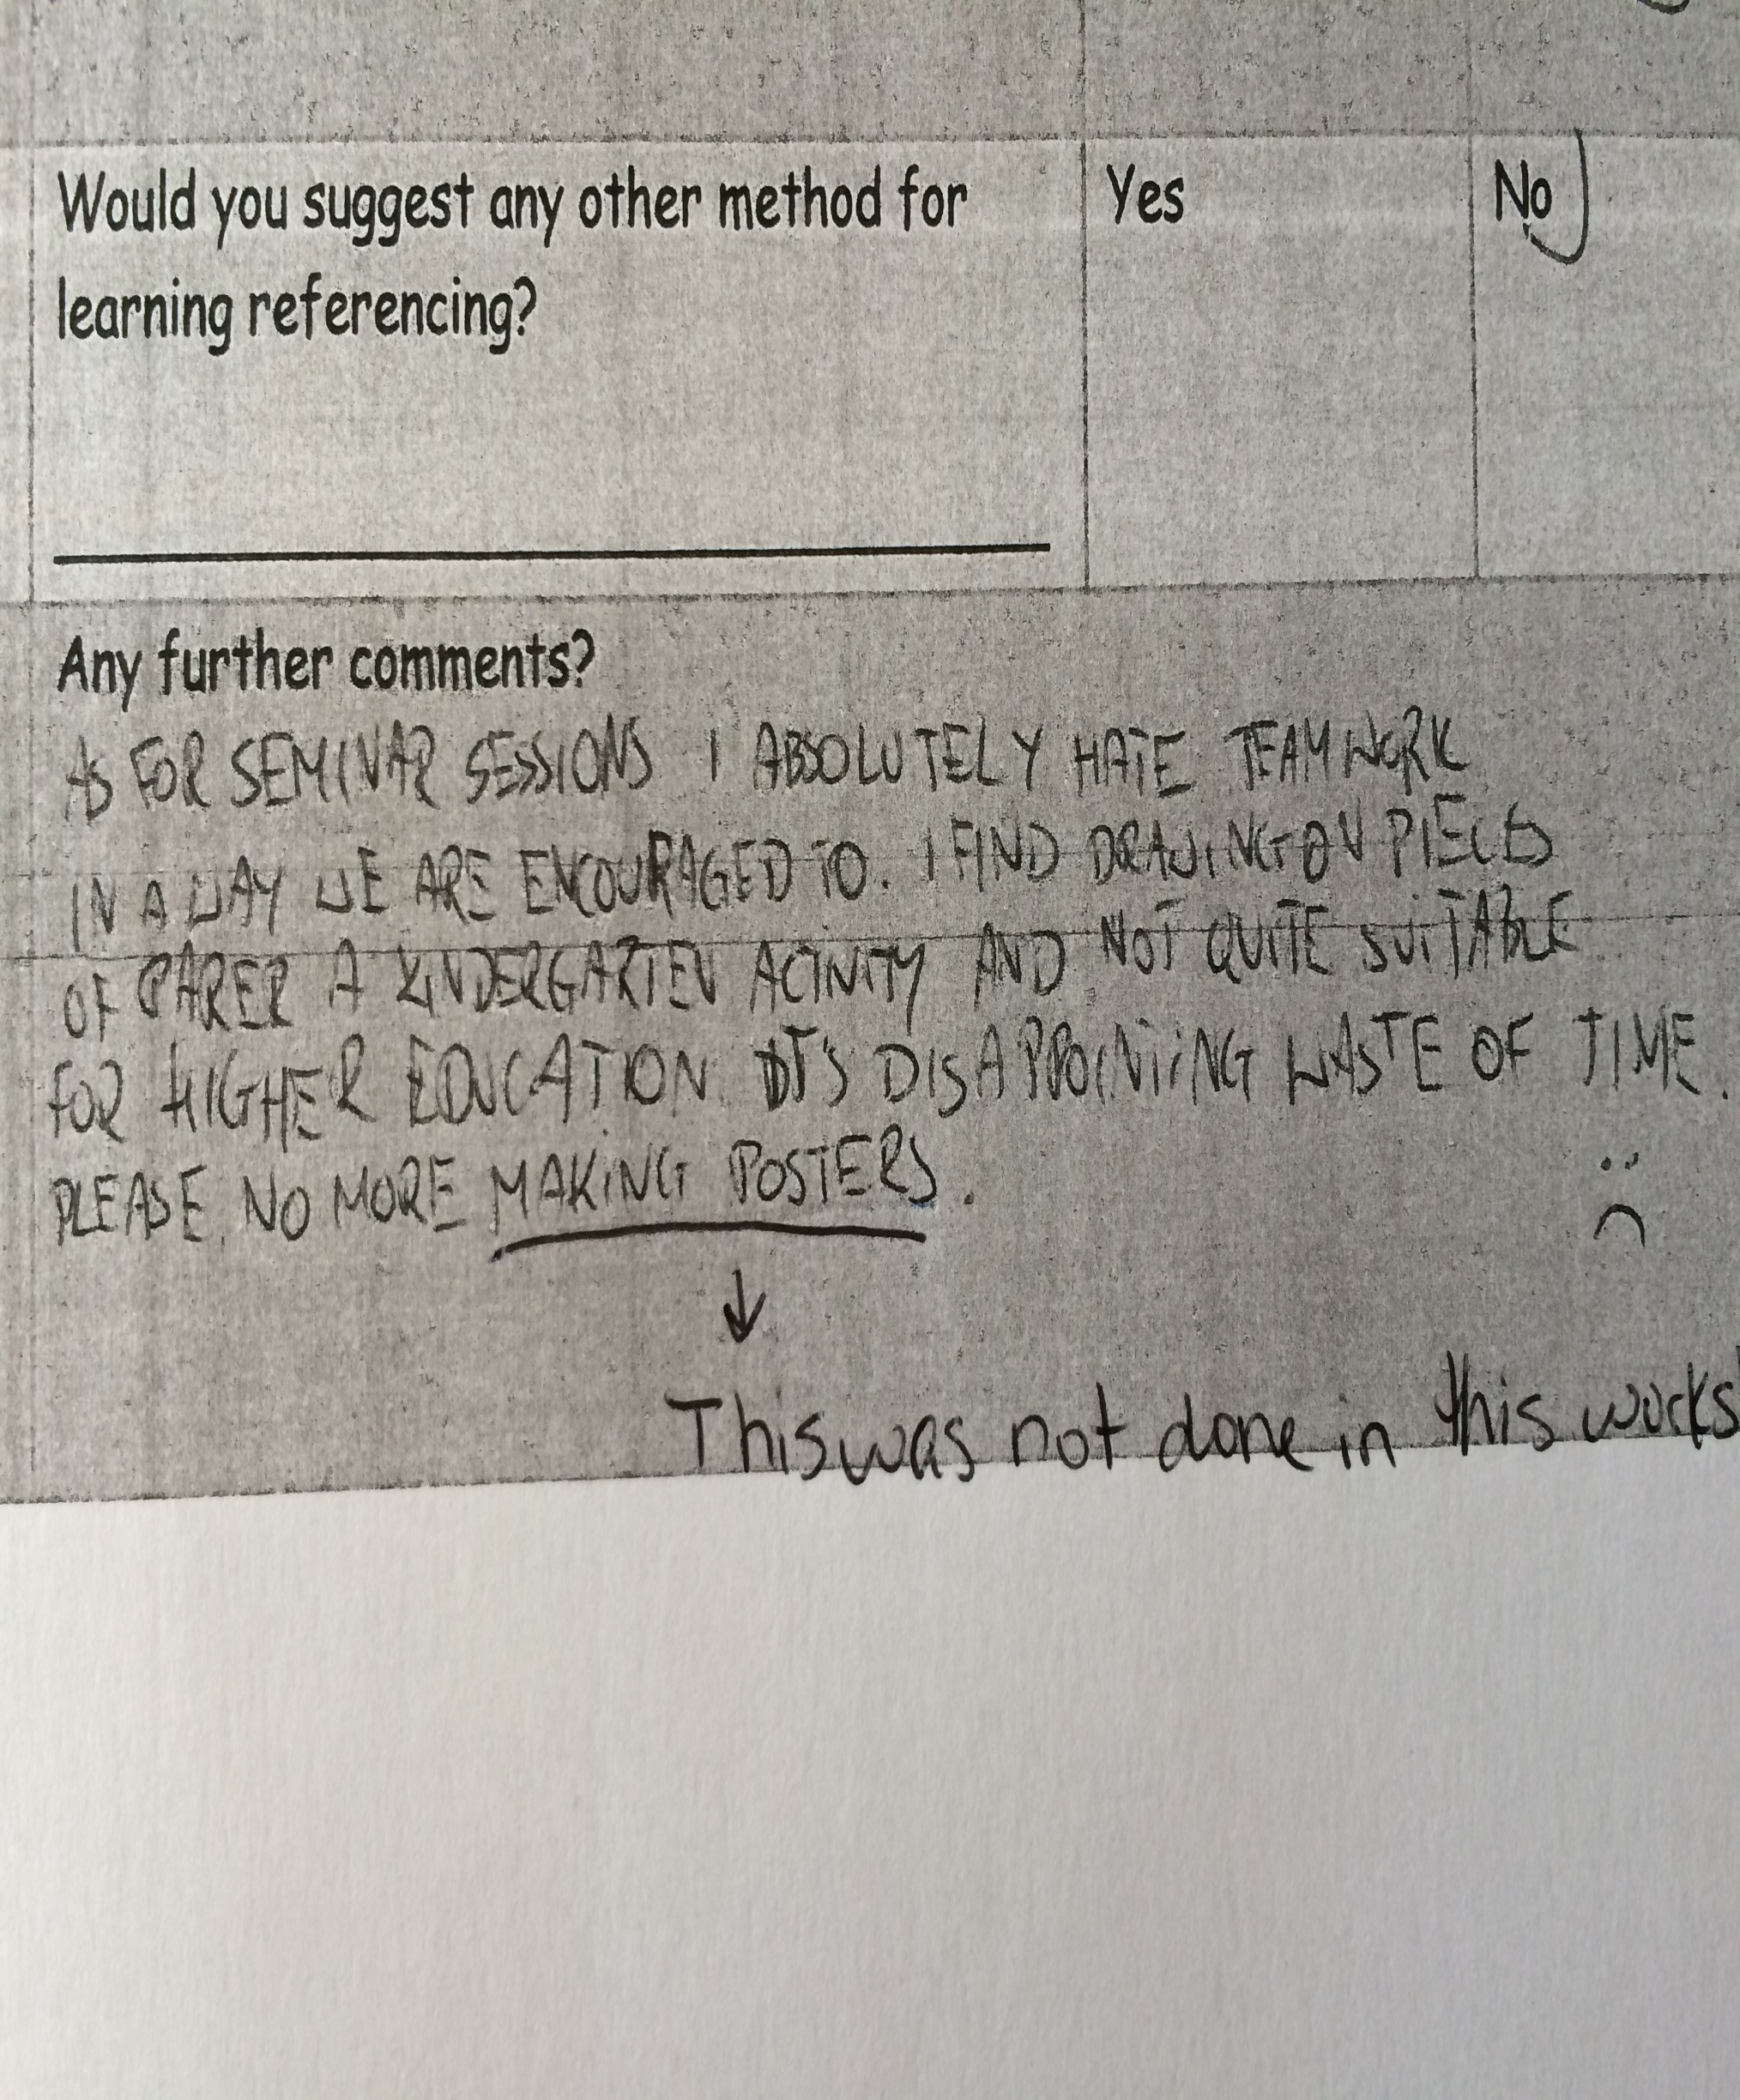 Would you suggest any other method for
learning referencing?
Yes
No
Any further comments?
AS FOR SEMINAR SESSIONS I ABSOLUTELY HATE TEAMWORK
IN A WAY WE ARE ENCOURAGED TO. I FIND DRAWING ON PIECES
OF PAPER A KINDERGARTEN ACTIVITY AND NOT QUITE SUITABLE
FOR HIGHER EDUCATION. IT'S DISAPPOINTING WASTE OF TIME.
PLEASE, NO MORE MAKING POSTERS.
This was not done in this works